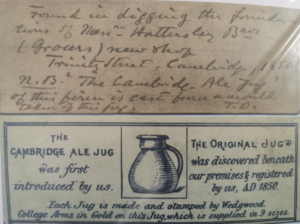 Found in digging the founda
tions of Messrs Hattersley Bros
(Grocers) new shop
Trinity Street, Cambridge, 1850
N.B. The Cambridge Ale Jug
of this form is cast from a mould
taken of this jug. T.D.
THE
CAMBRIDGE ALE JUG
was first
introduced by us.
THE ORIGINAL JUG
was discovered beneath
our premises & registered
by us, A.D 1850.
Each Jug is made and stamped by Wedgwood
College Arms in Gold on this Jug, which is supplied in 9 sizes